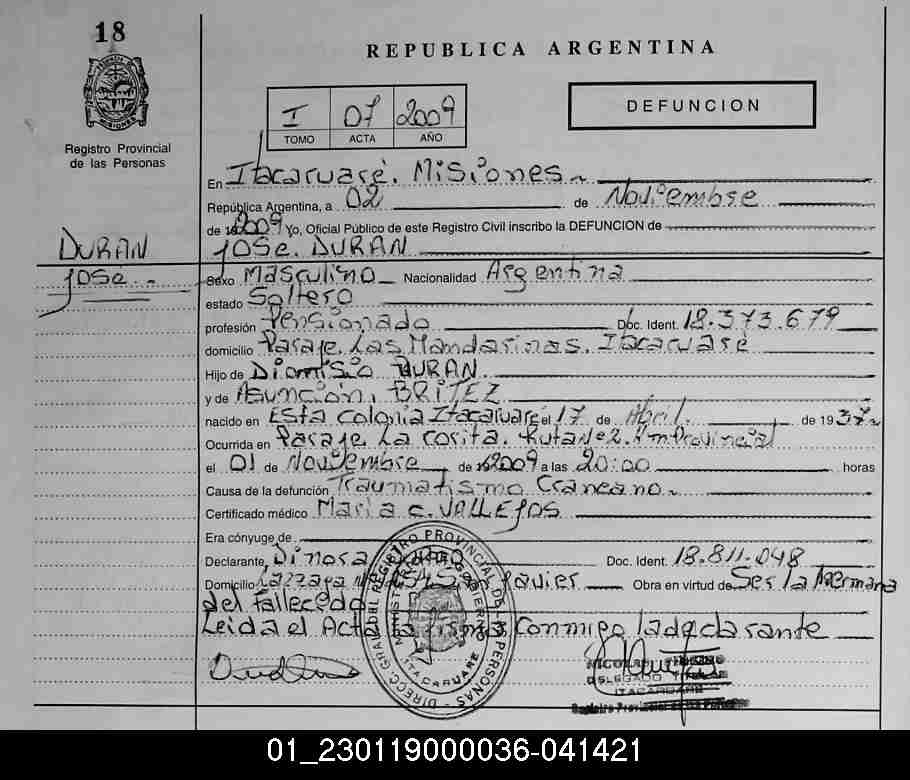 18
REPUBLICA ARGENTINA
MISIONES
Registro Provincial
de las Personas
I 07 2009
TOMO ACTA AÑO
DEFUNCION
En Itacaruaré. Misiones
República Argentina, a 02 de Noviembre
de 2009 Yo, Oficial Público de este Registro Civil inscribo la DEFUNCION de
DURAN
José.
José. DURAN
Sexo Masculino Nacionalidad Argentina
estado Soltero
profesión Pensionado Doc. Ident. 18.373.679
domicilio Paraje. Las Mandarinas. Itacaruaré
Hijo de Dionisio DURAN
y de Asunción. BRITEZ
nacido en Esta Colonia Itacaruaré el 17 de Abril de 1937
Ocurrida en Paraje La Corita. Ruta Nº2. Provincial
el 01 de Noviembre de 2009 a las 20:00 horas
Causa de la defunción Traumatismo Craneano.
Certificado médico Maria C. VALLEJOS
Era cónyuge de
Declarante, Dinora Doc. Ident. 18.811.048
Domicilio Javier Obra en virtud de Ser la Hermana
del Fallecedo
Leida el Acta la firma Conmigo la declarante
REGISTRO PROVINCIAL DE LAS PERSONAS - DIRECC. GRAL DEL
ITACARUARE
DELEGADO TITULAR
ITACARUARE
Registro Provincial de las Personas
01_230119000036-041421